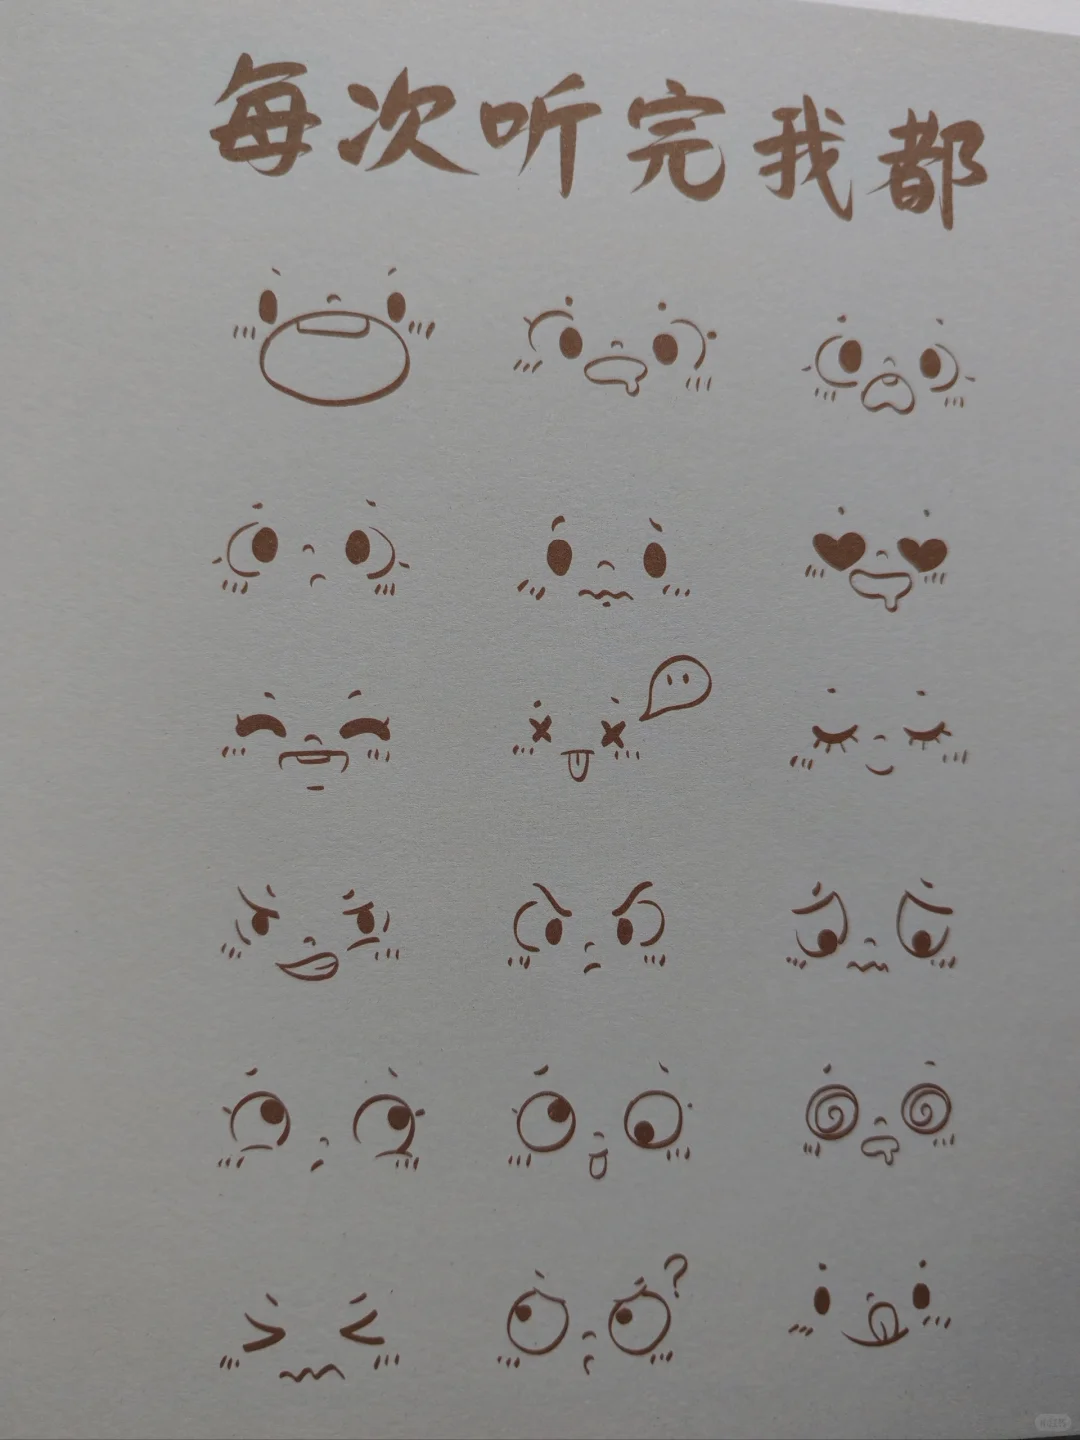 每次听完我都
?